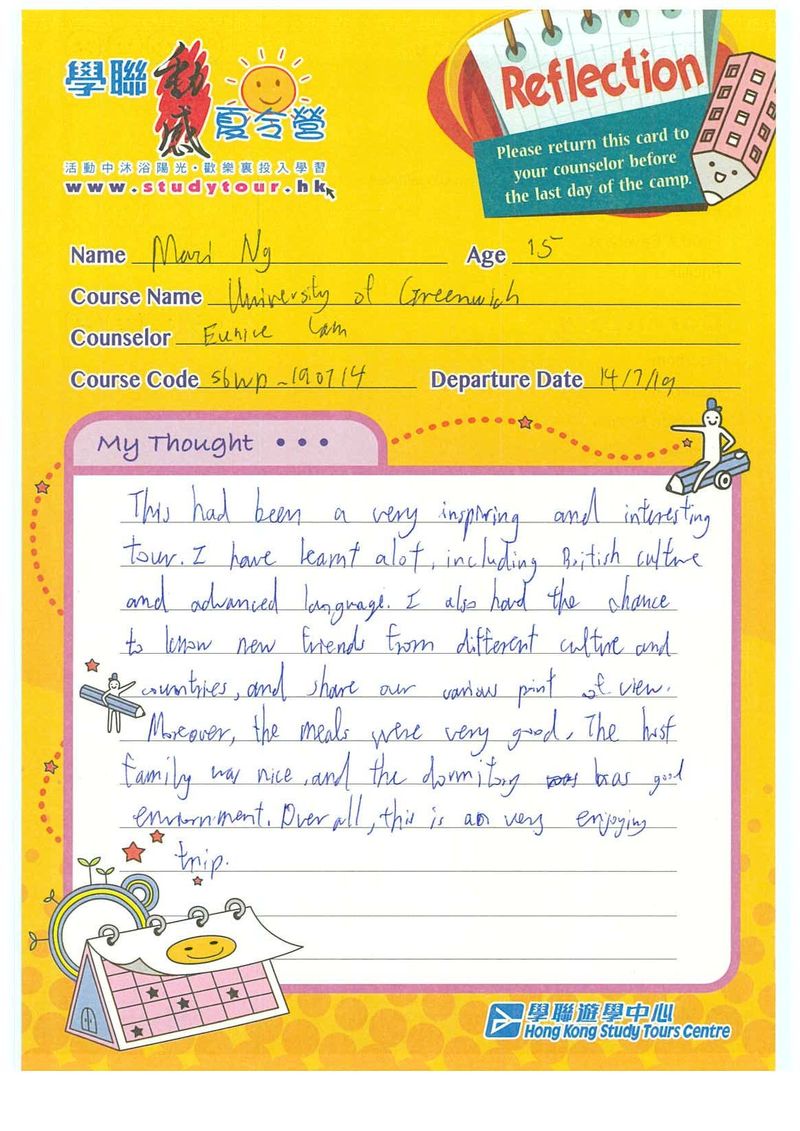 學聯動感夏令營
活動中沐浴陽光‧歡樂裏投入學習
www.studytour.hk
Reflection
Please return this card to
your counselor before
the last day of the camp.
Name Mari Ng Age 15
Course Name University of Greenwich
Counselor Eunice Lam
Course Code sbwp-190714 Departure Date 14/7/19
My Thought • • •
This had been a very inspiring and interesting
tour. I have learnt alot, including British culture
and advanced language. I also had the chance
to know new friends from different culture and
countries, and share our various point of view.
Moreover, the meals were very good. The host
family was nice, and the dormitory has good
environment. Over all, this is an very enjoying
trip.
學聯遊學中心
Hong Kong Study Tours Centre